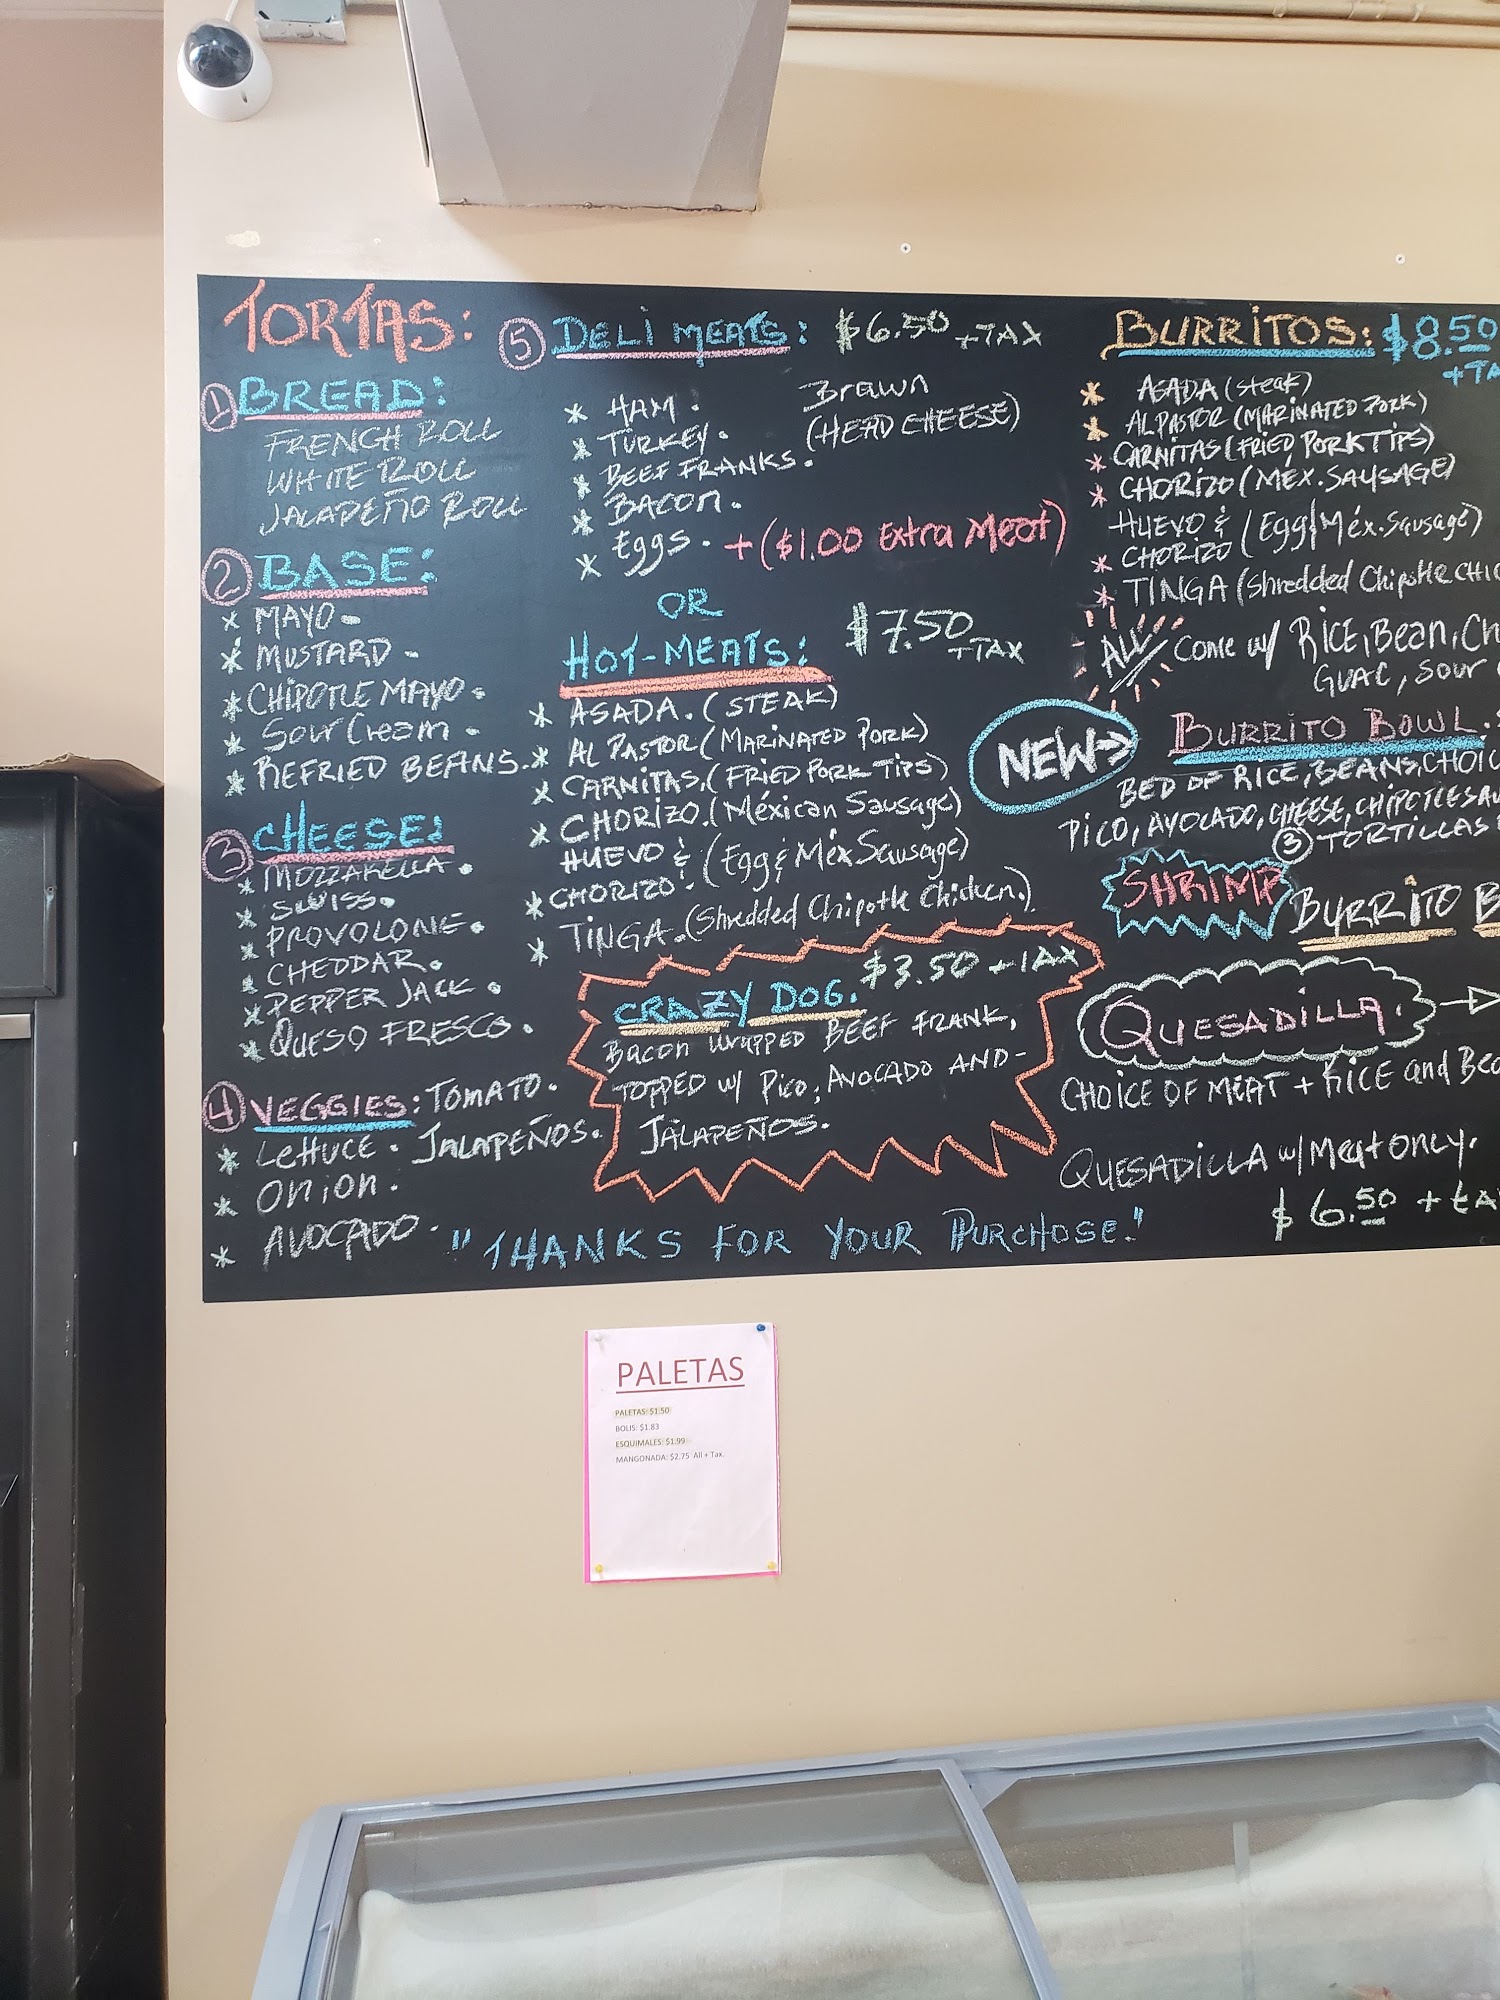 TORTAS:
① BREAD:
FRENCH ROLL
WHITE ROLL
JALAPEÑO ROLL
② BASE:
* MAYO.
* MUSTARD.
* CHIPOTLE MAYO.
* Sour Cream.
* REFRIED BEANS.
③ CHEESE:
* MOZZARELLA.
* SWISS.
* PROVOLONE.
* CHEDDAR.
* PEPPER JACK.
* QUESO FRESCO.
④ VEGGIES: TOMATO.
* LETTUCE. JALAPEÑOS.
* ONION.
* AVOCADO.
⑤ DELI MEATS: $6.50 +TAX
* HAM. Brawn
* TURKEY. (HEAD CHEESE)
* BEEF FRANKS.
* BACON.
* Eggs. + ($1.00 Extra Meat)
OR
HOT-MEATS: $7.50 +TAX
* ASADA. (STEAK)
* AL PASTOR (MARINATED PORK)
* CARNITAS. (FRIED PORK TIPS)
* CHORIZO. (Méxican Sausage)
HUEVO & (Egg & Méx Sausage)
* CHORIZO.
* TINGA. (Shredded Chipotle Chicken.)
CRAZY DOG. $3.50 +TAX
Bacon Wrapped BEEF FRANK,
TOPPED w/ Pico, AVOCADO AND-
JALAPEÑOS.
"THANKS FOR YOUR PURCHOSE."
BURRITOS: $8.50
* ASADA (steak)
* AL PASTOR (MARINATED PORK)
* CARNITAS (FRIED PORK TIPS)
* CHORIZO (MEX. SAUSAGE)
HUEVO & (Egg & Méx. Sausage)
* CHORIZO
* TINGA (Shredded Chipotle
ALL Come w/ RICE, Bean,
GUAC, SOUR
NEW→ BURRITO BOWL.
BED OF RICE, BEANS,
PICO, AVOCADO, CHEESE, CHIPOTLE
③ TORTILLAS
SHRIMP BURRITO
QUESADILLA.
CHOICE OF MEAT + RICE and
QUESADILLA w/ Meat only.
$6.50
PALETAS
PALETAS: $1.50
BOLIS: $1.83
ESQUIMALES: $1.99
MANGONADA: $2.75 All + Tax.